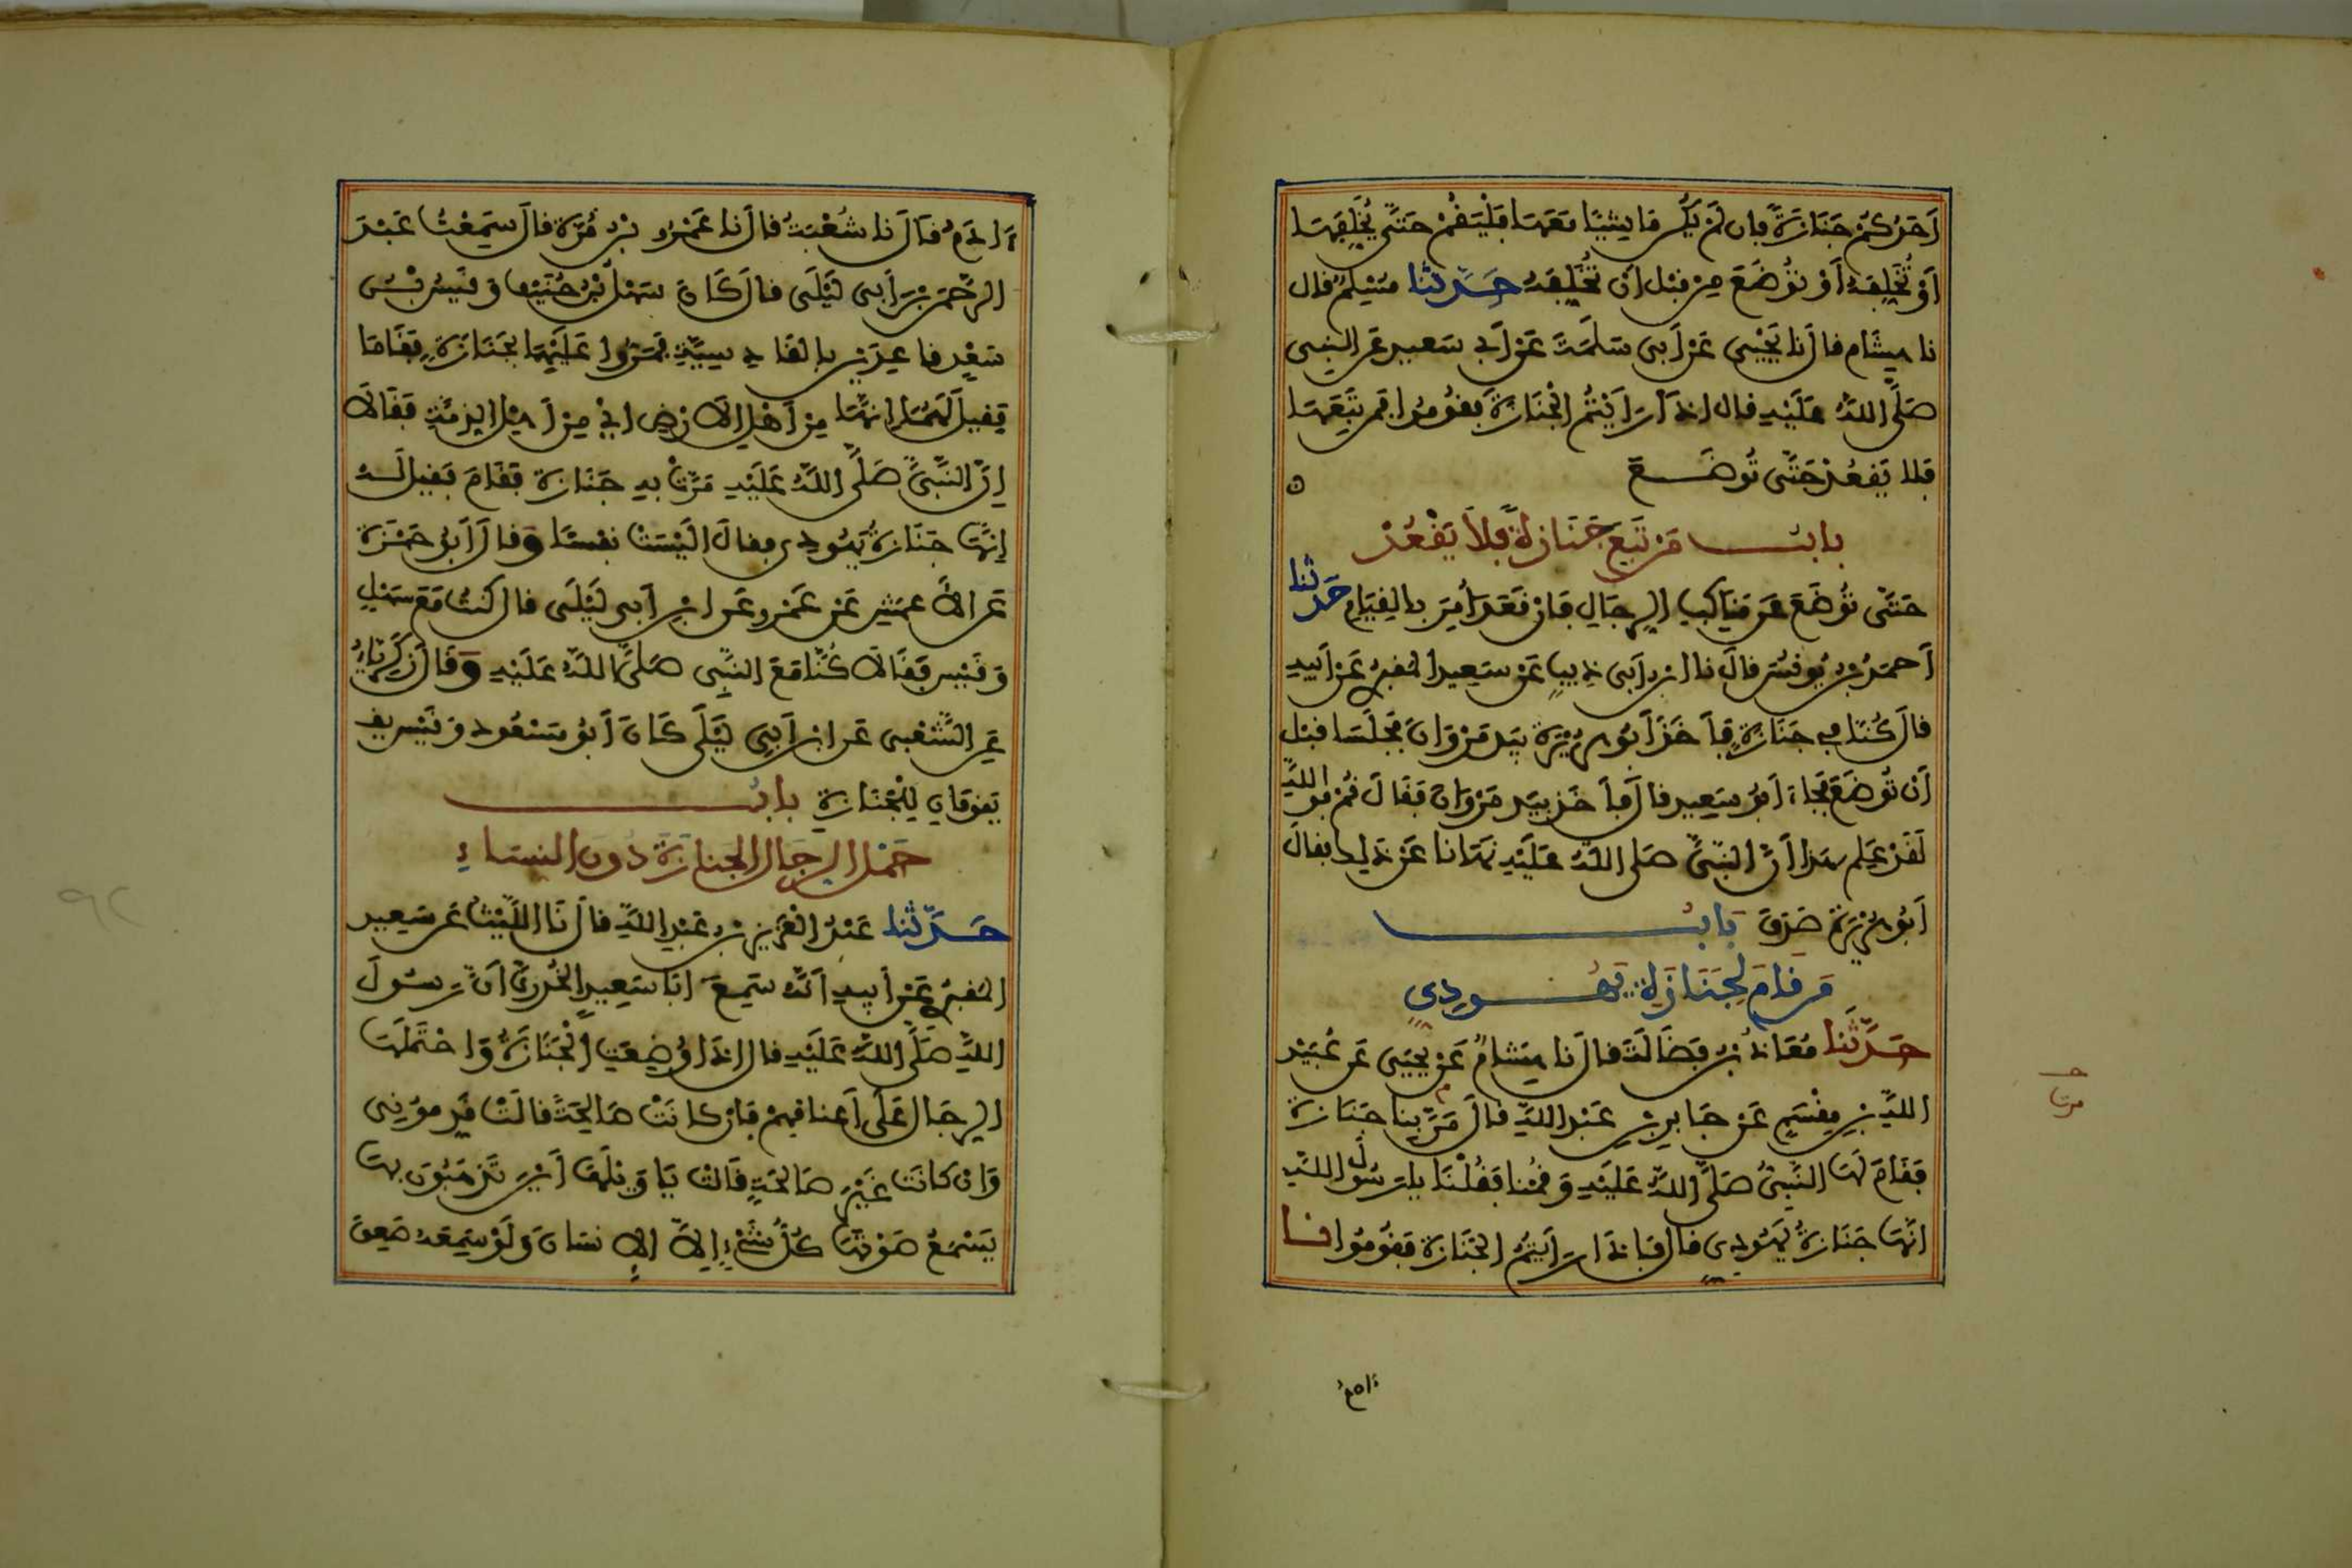 أَحَدُكُمْ جَنَازَةً فَإِن لَمْ يَكُن مَاشِيًا مَعَهَا فَلْيَقُمْ حَتَّى يُخَلِّفَهَا
أَوْ تُخَلِّفَهُ أَوْ تُوضَعَ مِنْ قَبْلِ أَنْ تُخَلِّفَهُ حَدَّثَنَا مُسْلِمٌ قال
نا هِشَام قالَ نا يَحْيَى عَنْ أَبِي سَلَمَةَ عَنْ أَبِي سَعِيد عَنِ النَّبِي
صَلَّى اللَّهُ عَلَيْهِ قال إذا رَأَيْتُمُ الْجَنَازَةَ فَقُومُوا فَمَن تَبِعَهَا
فَلا يَقْعُدْ حَتَّى تُوضَعَ
بابُ مَنْ تَبِعَ جَنَازَةً فَلاَ يَقْعُدْ
حَتَّى تُوضَعَ عَن مَنَاكِبِ الرِّجَالِ فَإِنْ قَعَدَ أُمِرَ بِالقِيَامِ حَدثَنا
أَحمَدُ بْنُ يُونُسَ قالَ نا ابن أَبِي ذِيبٍ عَنْ سَعِيدٍ المَقْبُرِي عَنْ أَبِيهِ
قالَ كُنَّا فِي جَنَازَةٍ فَأَخَذَ أَبُو هُرَيْرَةَ بِيَدِ مَرْوَانَ فَجَلَسَا قبْل
أَن تُوضَعَ فَجَاءَ أَبُو سَعِيد قالَ فَأَخَذَ بِيَدِ مَرْوَانَ فَقَالَ قُمْ فواللَّهِ
لَقَدْ عَلِمَ هَذا أَنَّ النَّبِيَّ صَلى اللَّهُ عَلَيْهِ نَهَانا عَنْ ذَلِك فقالَ
أَبُو هُرَيْرَة صَدَقَ بَابُ
مَن قَامَ لِجَنَازَةِ يَهُودِي
حَدَّثَنَا مُعَاذُ بْنُ فَضَالَةَ قالَ نَا هِشَامٌ عَنْ يَحْيَى عَن عُبَيْدِ
اللَّهِ بْنِ مِقْسَمٍ عَن جَابِرِ بْنِ عَبْدِ اللَّهِ قالَ مَرَّ بِنا جَنَازَة
فَقَامَ لَهَا النَّبِيُّ صَلَّى اللَّهُ عَلَيْهِ وَقُمْنا فَقُلْنَا يا رَسُولَ اللَّهِ
انَّهَا جَنَازَةُ يَهُودِيٍ قالَ فَإِذَا رَأَيْتُمُ الجَنَازَةَ فَقُومُوا نا
آدَمُ قَالَ نا شُعْبَةُ قالَ نا عَمْرُو بْنُ مُرَّةَ قالَ سَمِعْتُ عَبْدَ
الرَّحْمَنِ بْنَ أَبِي لَيْلَى قالَ كَانَ سَهْلُ بْنُ حُنَيْفٍ وَقَيْسُ بْنُ
سَعْدٍ قاعِدَيْنِ بِالقَادِسِيَّةِ فَمَرُّوا عَلَيْهِمَا بِجَنَازَةٍ فَقَامَا
فَقِيلَ لَهُمَا إِنَّهَا مِنْ أَهْلِ الأَرْضِ أَيْ مِنْ أَهْلِ الذِّمَّةِ فَقَالاَ
إِنَّ النَّبِيَّ صَلَّى اللَّهُ عَلَيْهِ مَرَّتْ بِهِ جَنَازَة فَقَامَ فَقِيلَ لَهُ
إِنَّهَا جَنَازَةُ يَهُودِي فقالَ أَلَيْسَتْ نفْسًا وَقالَ أَبُو حَمْزَةَ
عَنِ الأَعْمَشِ عَنْ عَمْرٍو عَنِ ابْنِ أَبِي لَيْلَى قال كُنْتُ مَعَ سَهْلٍ
وَقَيْسٍ فَقَالاَ كُنَّا مَعَ النَّبِي صَلَّى اللَّهُ عَلَيْهِ وَقَالَ زَكَرِيَّاءُ
عَنِ الشَّعْبِي عَنِ ابْنِ أَبِي لَيْلَى كَانَ أَبُو مَسْعُودٍ وَقَيْس يق
يَقُومَانِ لِلْجَنَازَةِ بابُ
حَمْلِ الرِّجَالِ الجَنَازَةَ دُونَ النِّسَاءِ
حَدَّثَنا عَبْدُ الْعَزِيزِ بْنُ عَبْدِ اللَّهِ قالَ نَا اللَّيْثُ عَن سَعِيدٍ
المَقْبُرِي عَنْ أَبِيهِ أَنَّهُ سَمِعَ أَبَا سَعِيدٍ الخُدْرِيَّ أَنَّ رَسُولَ
اللَّهِ صَلَّى اللَّهُ عَلَيْهِ قالَ إِذَا وُضِعَتِ الْجَنَازَةُ وَاحْتَمَلَهَا
الرِّجَالُ عَلَى أَعْنَاقِهِمْ فَإِنْ كَانَتْ صَالِحَةً قالَتْ قَدِّمُونِي
وَإِن كَانَتْ غَيْرَ صَالِحَةٍ قَالَتْ يَا وَيْلَهَا أَيْنَ تَذْهَبُونَ بِهَا
يَسْمَعُ صَوْتَهَا كُلُّ شَيْءٍ إِلاَّ الإِنسَانَ وَلَوْ سَمِعَهُ صَعِقَ